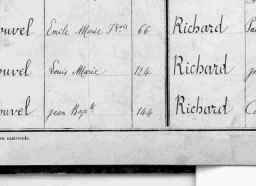 ouvel Emile Marie 66 Richard
ouvel Louis Marie 124 Richard
ouvel Jean Bap.te 144 Richard